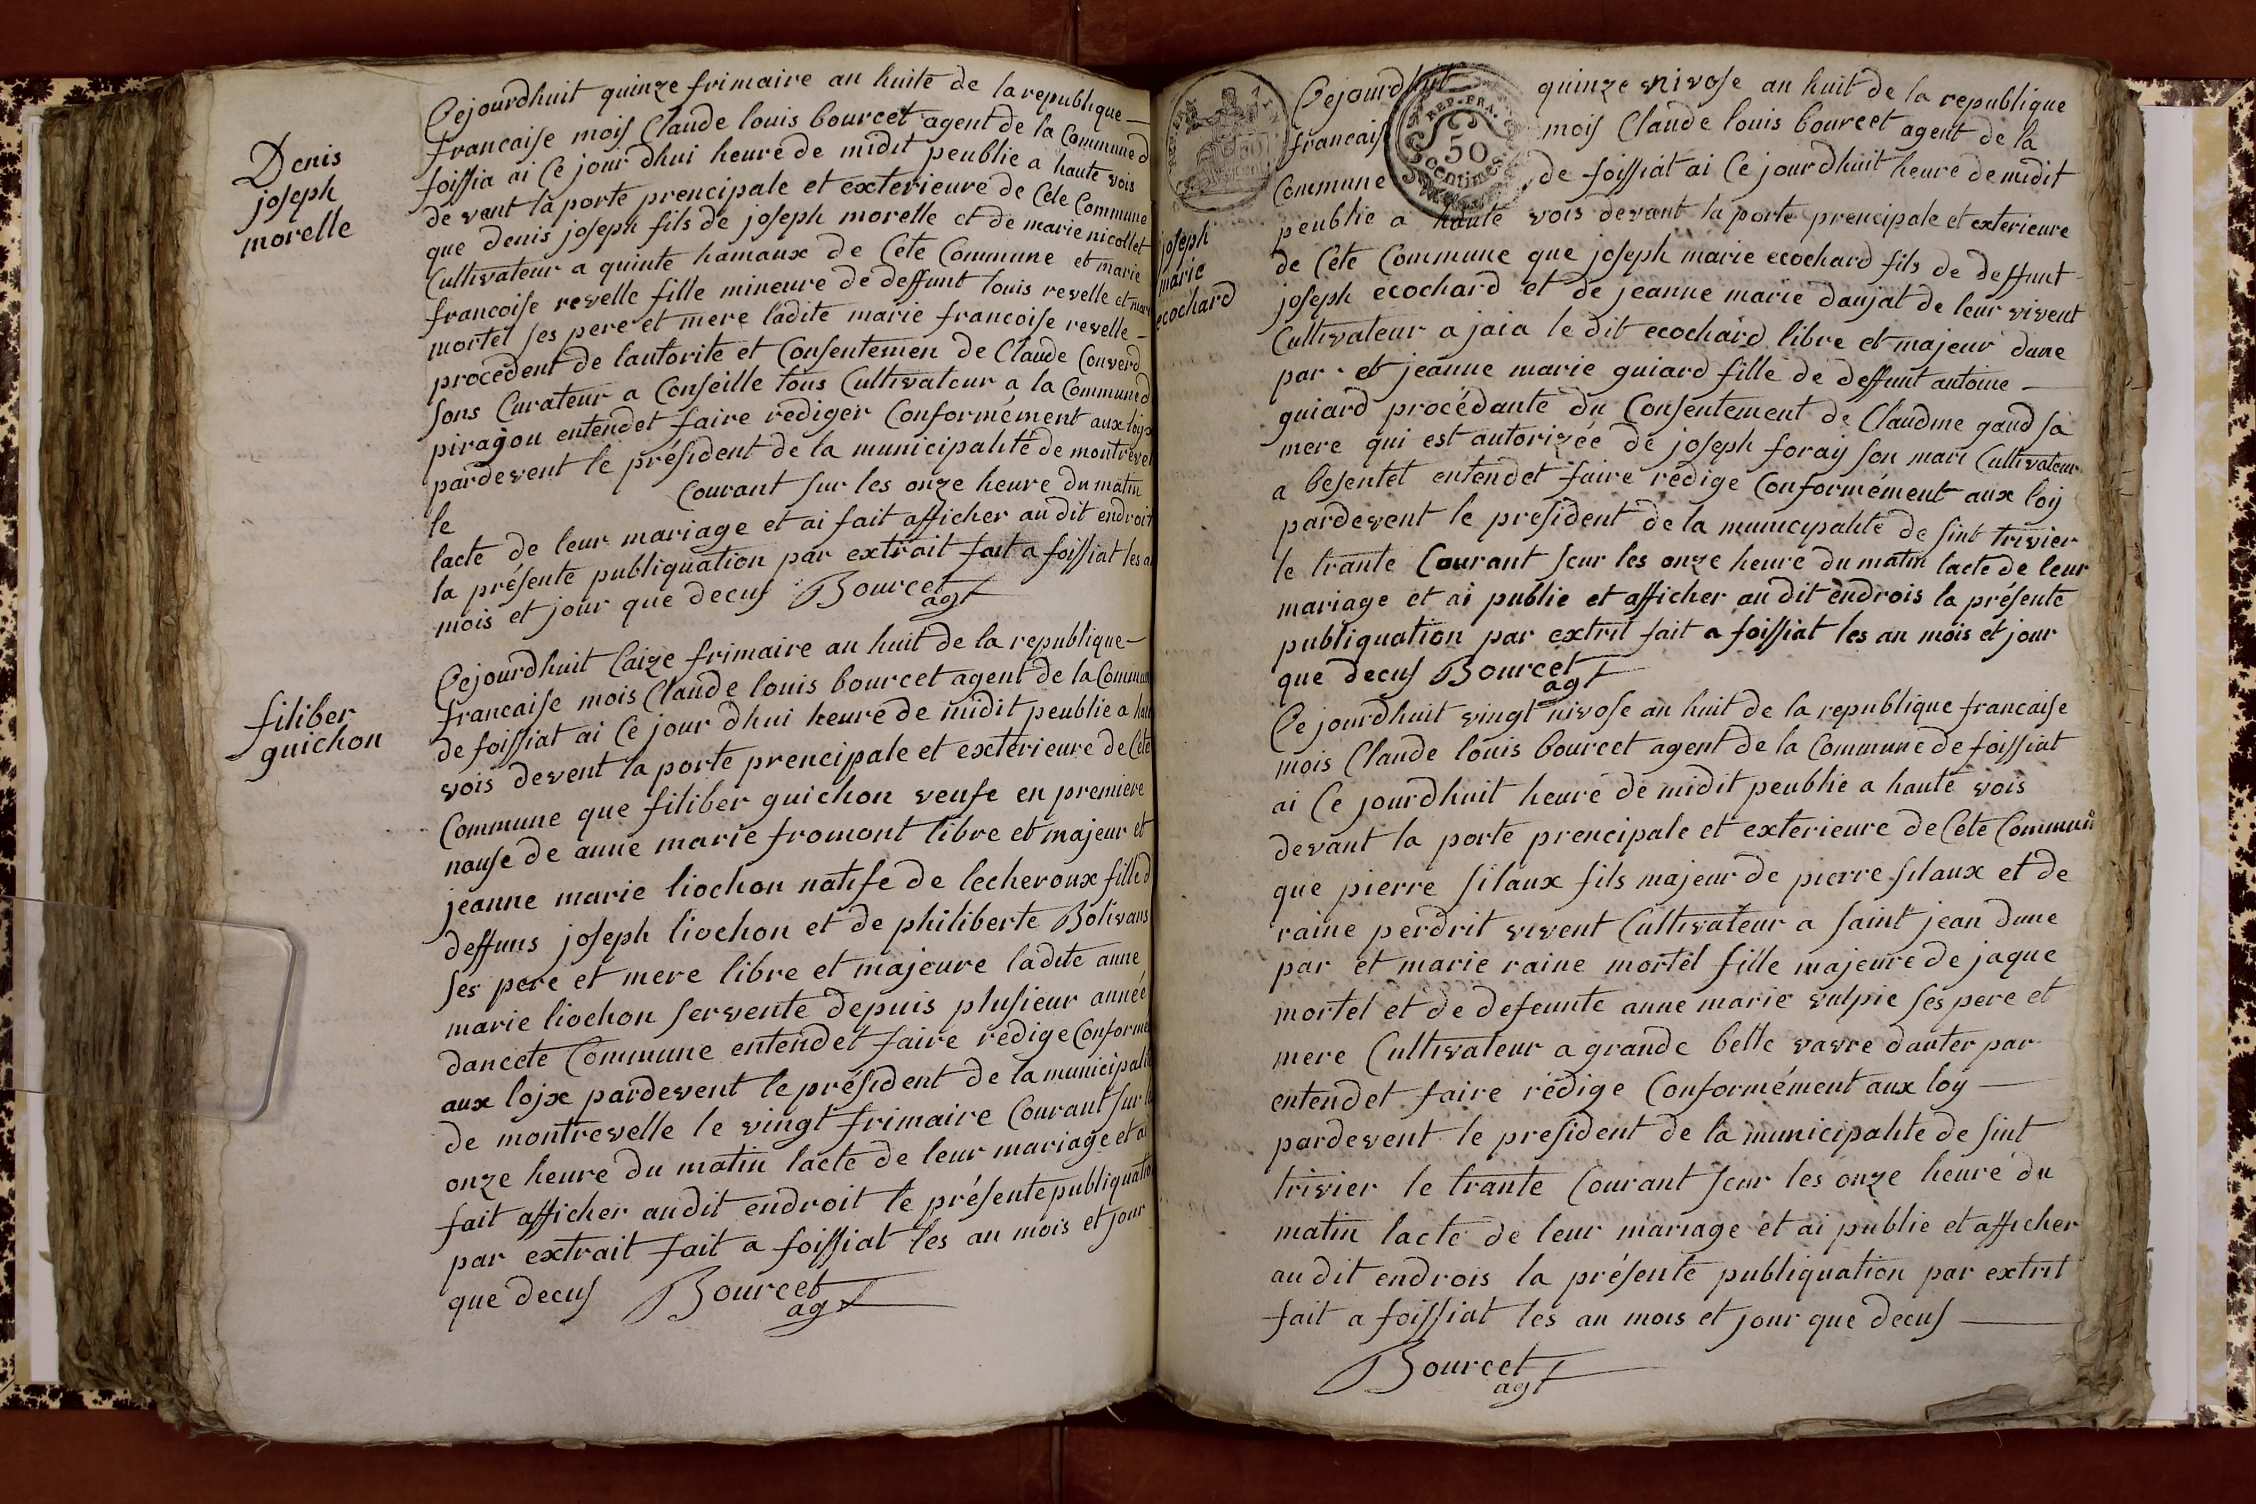 Denis
joseph
morelle
Cejourdhuit quinze frimaire an huite de la republique
francaise mois Claude louis bourcet agent de la Commune d
foissia ai Ce jour dhui heure de midit peublie a haute vois
de vent la porte prencipale et exterieure de Cete Commune
que denis joseph fils de joseph morelle et de marie nicollet
Cultivateur a quinte hamaux de Cete Commune et marie
francoise revelle fille mineure de deffunt louis revelle et mari
mortel ses pere et mere ladite marie francoise revelle
procédent de lautorite et Consentemen de Claude Converd
sons Curateur a Conseille tous Cultivateur a la Commune d
piragou entendet faire rediger Conformément aux lojx
pardevent le président de la municipalité de montrevel
le Courant sur les onze heure du matin
lacte de leur mariage et ai fait afficher au dit endroit
la présente publiquation par extrait fait a foissiat les a
mois et jour que decus Bourcet
agt
filiber
guichon
Cejourdhuit Saize frimaire an huit de la republique
francaise mois Claude louis bourcet agent de la Commun
de foissiat ai Ce jour dhui heure de midit peublie a hau
vois devent la porte prencipale et exterieure de Cete
Commune que filiber guichon veufe en premiere
nause de anne marie fromont libre et majeur et
jeanne marie liochon natife de lecheroux fille d
deffuns joseph liochon et de philiberte Bolivans
ses pere et mere libre et majeure ladite anne
marie liochon servente depuis plusieur année
dancete Commune entendet faire redige Conformé
aux lojx pardevent le président de la municipalit
de montrevelle le vingt frimaire Courant sur le
onze heure du matin lacte de leur mariage et ai
fait afficher audit endroit le présente publiquatio
par extrait fait a foissiat les an mois et jour
que decus Bourcet
agt
REP. FRA.
50
Centimes
joseph
marie
ecochard
Cejourdhuit quinze nivose an huit de la republique
francais mois Claude louis bourcet agent de la
Commune de foissiat ai Ce jourdhuit heure de midit
peublie a haute vois devant la porte prencipale et exterieure
de Cete Commune que joseph marie ecochard fils de deffunt
joseph ecochard et de jeanne marie daujat de leur vivent
Cultivateur a jaia le dit ecochard libre et majeur dune
par et jeanne marie guiard fille de deffunt antoine
guiard procédante du Consentement de Claudine gaud sa
mere qui est autorizée de joseph foray son mari Cultivateur
a besentet entendet faire rédige Conformément aux loy
pardevent le president de la municipalite de sint trivier
le trante Courant seur les onze heure du matin lacte de leur
mariage et ai publie et afficher au dit endrois la présente
publiquation par extrit fait a foissiat les an mois et jour
que decus Bourcet
agt
Ce jourdhuit vingt nivose an huit de la republique francaise
mois Claude louis bourcet agent de la Commune de foissiat
ai Ce jourdhuit heure de midit peublie a haute vois
devant la porte prencipale et exterieure de Cete Commun
que pierre silaux fils majeur de pierre silaux et de
raine perdrit vivent Cultivateur a saint jean dune
par et marie raine mortel fille majeure de jaque
mortel et de defeunte anne marie vulpie ses pere et
mere Cultivateur a grande belle vavre dauter par
entendet faire rédige Conformément aux loy
pardevent le president de la municipalite de sint
trivier le trante Courant seur les onze heure du
matin lacte de leur mariage et ai publie et afficher
au dit endrois la présente publiquation par extrit
fait a foissiat les an mois et jour que decus
Bourcet
agt